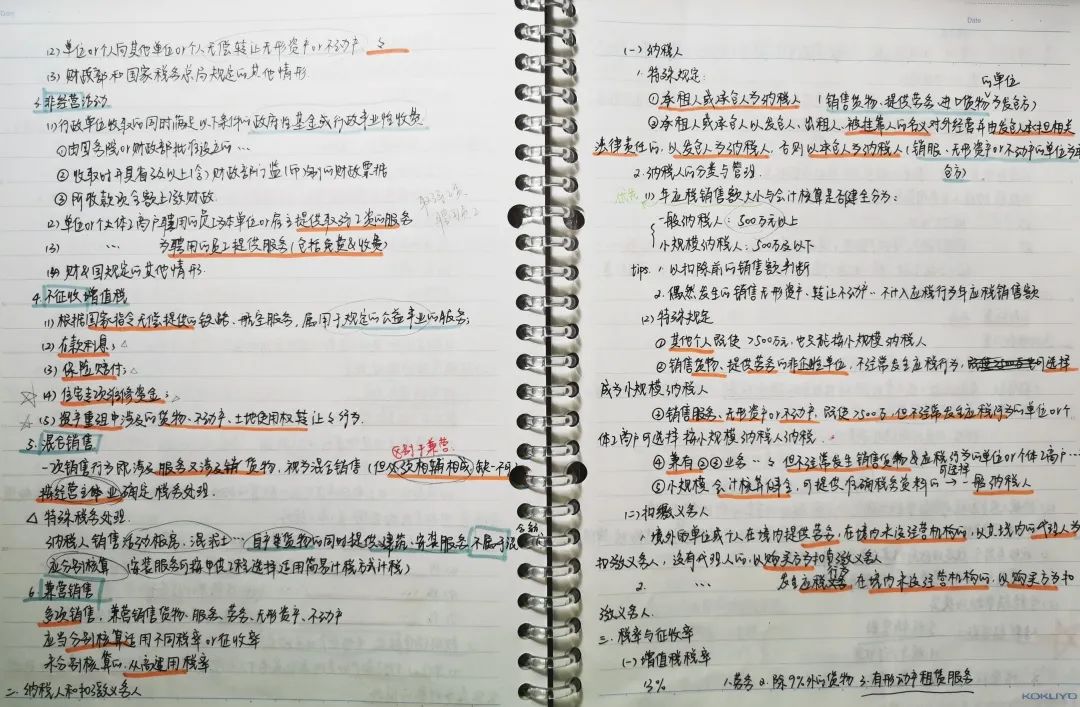 (2) 单位or个人向其他单位or个人无偿转让无形资产or不动产
(3) 财政部和国家税务总局规定的其他情形.
3.非经营活动
(1)行政单位收取的同时满足以下条件的政府性基金或行政事业性收费
①由国务院or财政部批准设立的…
②收取时开具省级以上(含)财政部门监(印)制的财政票据
③所收款项全额上缴财政.
(2)单位or个体工商户聘用的员工为本单位or雇主提供取得工资的服务
(3) ‥ 为聘用的员工提供服务(包括免费&收费)
(4)财&国规定的其他情形.
4.不征收增值税
(1)根据国家指令无偿提供的铁路、航空服务,属用于规定的公益事业的服务;
(2)存款利息;△
(3)保险赔付;△
☆(4)住宅专项维修资金;△
☆(5)资产重组中涉及的货物、不动产、土地使用权转让行为.
区别于兼营.
5.混合销售
一项销售行为既涉及服务又涉及销货物,视为混合销售(
按经营主体业确定税务处理.
△特殊税务处理.
纳税人销售活动板房、 自产货物的同时提供建筑、安装服务,不属于混合销
应分别核算 (安装服务可按甲供工程选择适用简易计税方式计税)
6.兼营销售
多项销售,兼营销售货物、服务、劳务、无形资产、不动产
应当分别核算适用不同税率or征收率
未分别核算的,从高适用税率
二.纳税人和扣缴义务人
Date
(一) 纳税人
1.特殊规定:
的单位
①承租人或承包人为纳税人 (销售货物、提供劳务、进口货物 为发包方)
②承租人或承包人以发包人、出租人、被挂靠人的名义对外经营并由发包人承担相关
法律责任的,以发包人为纳税人,否则以承包人为纳税人(销服、无形资产or不动产的单位为
2.纳税人的分类与管理.
(1) 年应税销售额大小与会计核算是否健全分为:
一般纳税人:500万元以上
小规模纳税人:500万及以下
tips. 1.以扣除前的销售额判断
2.偶然发生的销售无形资产、转让不动产…不计入应税行为年应税销售额
(2)特殊规定
①其他个人既使>500万元,也只能按小规模纳税人
②销售货物、提供劳务的非企业性单位、不经常发生应税行为, 可选择
成为小规模纳税人
③销售服务、无形资产or不动产,既使>500万,但不经常发生应税行为的单位or个
体工商户可选择按小规模纳税人纳税.
④兼有②③业务… 但不经常发生销售货物&应税行为的单位or个体工商户…
可选择
⑤小规模会计核算健全,可提供准确税务资料的→一般纳税人
(二)扣缴义务人
1.境外的单位或个人在境内提供劳务,在境内未设经营机构的,以其境内的代理人为
扣缴义务人,没有代理人的,以购买方为扣缴义务人
2. ‥ 发生应税行为,在境内未设经营机构的,以购买方为扣
缴义务人.
三.税率与征收率
(一)增值税税率
13% 1.劳务 2.除9%外的货物 3.有形动产租赁服务
KOKUYO